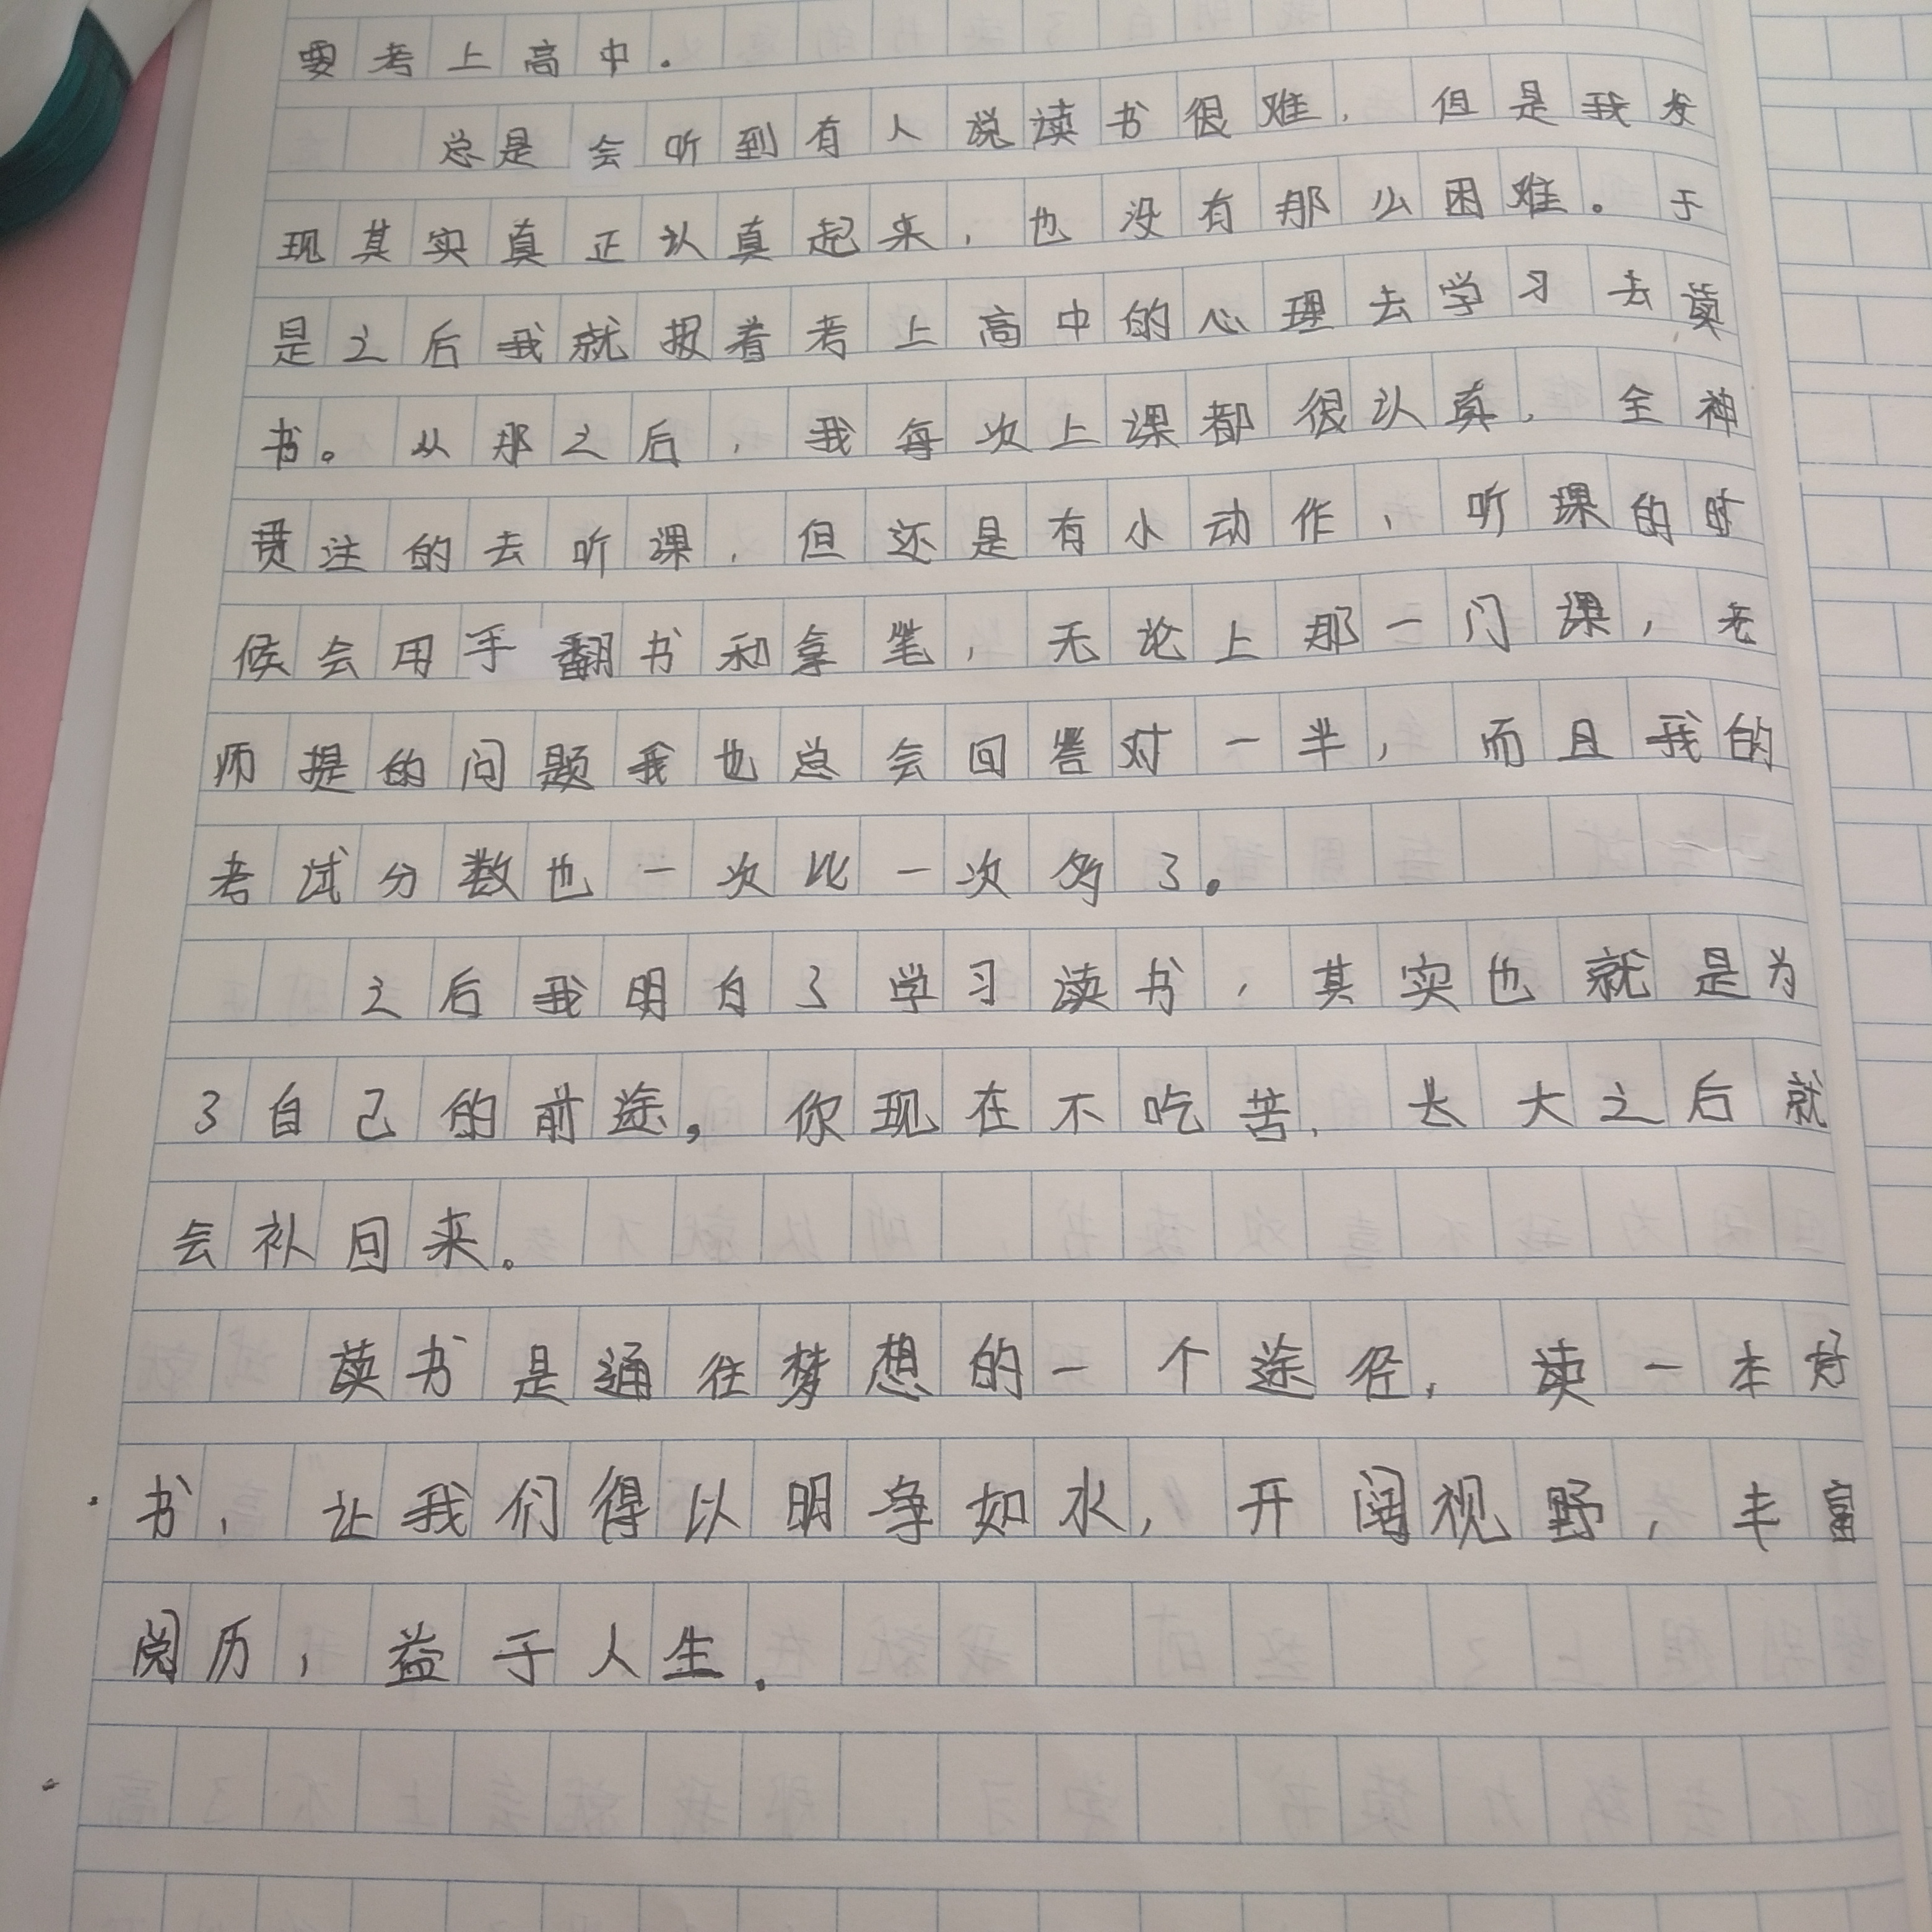 要考上高中.
总是会听到有人说读书很难,但是我发
现其实真正认真起来,也没有那么困难。于
是之后我就报着考上高中的心理去学习去读
书。从那之后,我每次上课都很认真,全神
贯注的去听课,但还是有小动作,听课的时
候会用手翻书和拿笔,无论上那一门课,老
师提的问题我也总会回答对一半,而且我的
考试分数也一次比一次多了。
之后我明白了学习读书,其实也就是为
了自己的前途。你现在不吃苦,长大之后就
会补回来。
读书是通往梦想的一个途径,读一本好
书,让我们得以明争如水,开阔视野,丰富
阅历,益于人生.